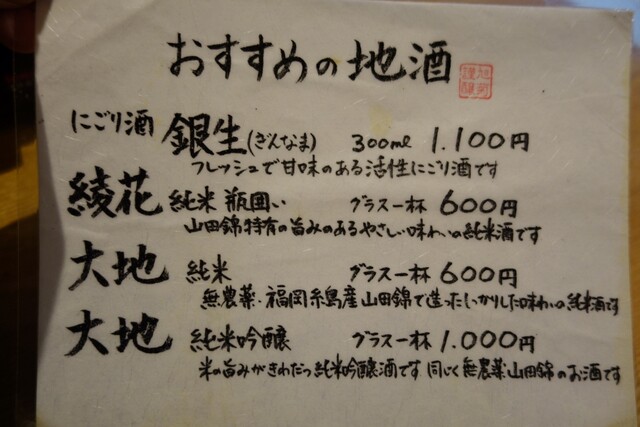 おすすめの地酒
にごり酒 銀生(ぎんなま) 300ml 1.100円
フレッシュで甘味のある活性にごり酒です
綾花 純米 瓶囲い グラス一杯 600円
山田錦特有の旨みのあるやさしい味わいの純米酒です
大地 純米 グラス一杯 600円
無農薬・福岡糸島産山田錦で造ったしっかりした味わいの純米酒です
大地 純米吟醸 グラス一杯 1.000円
米の旨みがきわだつ純米吟醸酒です 同じく無農薬山田錦のお酒です